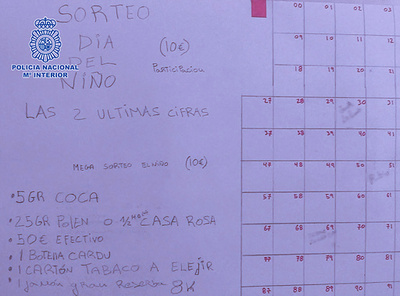 SORTEO
DIA
DEL
NIÑO
(10€)
Participacion
POLICIA NACIONAL
Mº INTERIOR
LAS 2 ULTIMAS CIFRAS
MEGA SORTEO EL NIÑO (10€)
•5GR COCA
•25GR POLEN O ½ CASA ROSA
•50€ EFECTIVO
•1 BOTELLA CARDU
•1 CARTÓN TABACO A ELEJIR
•1 jamón gran Reserva 8K
00 01 02
09 10 11
18 19 20
27 28 29 30 31
37 38 39 40 41
47 48 49 50 51
57 58 59 60 61
67 68 69 70 71
77 78 79 80 81
87 88 89 90 91